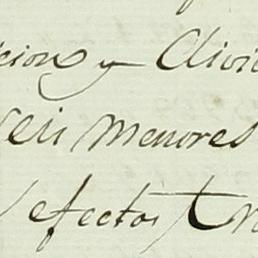 cion y Divi
seis menores
efectos